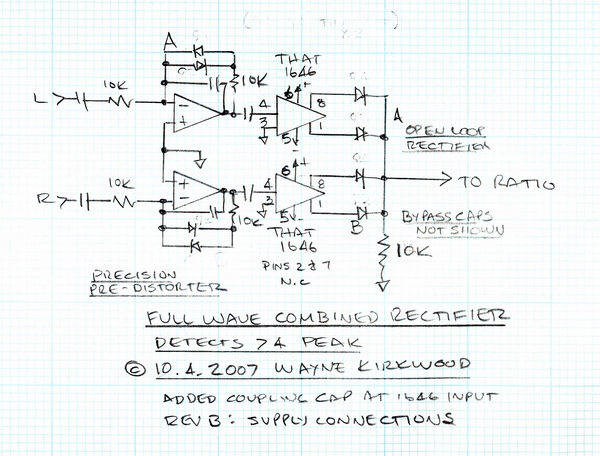 A
10K
10K
L
THAT
1646
6
+
4
3
8
1
5
-
A
OPEN LOOP
RECTIFIER
-
+
+
-
TO RATIO
R
10K
10K
6
+
4
3
8
1
5
-
B
BYPASS CAPS
NOT SHOWN
10K
THAT
1646
PINS 2 & 7
N.C
PRECISION
PRE-DISTORTER
FULL WAVE COMBINED RECTIFIER
DETECTS >4 PEAK
© 10.4.2007 WAYNE KIRKWOOD
ADDED COUPLING CAP AT 1646 INPUT
REV B: SUPPLY CONNECTIONS